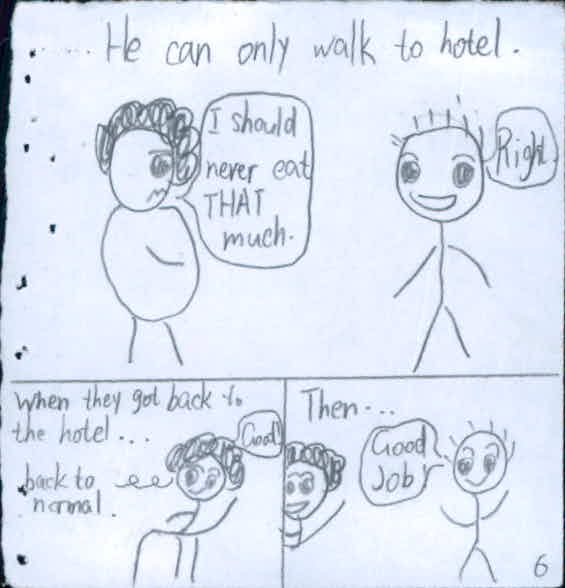 ... He can only walk to hotel.
I should
never eat
THAT
much.
Right
When they got back to
the hotel...
Good!
back to
normal.
Then...
Good
Job
6